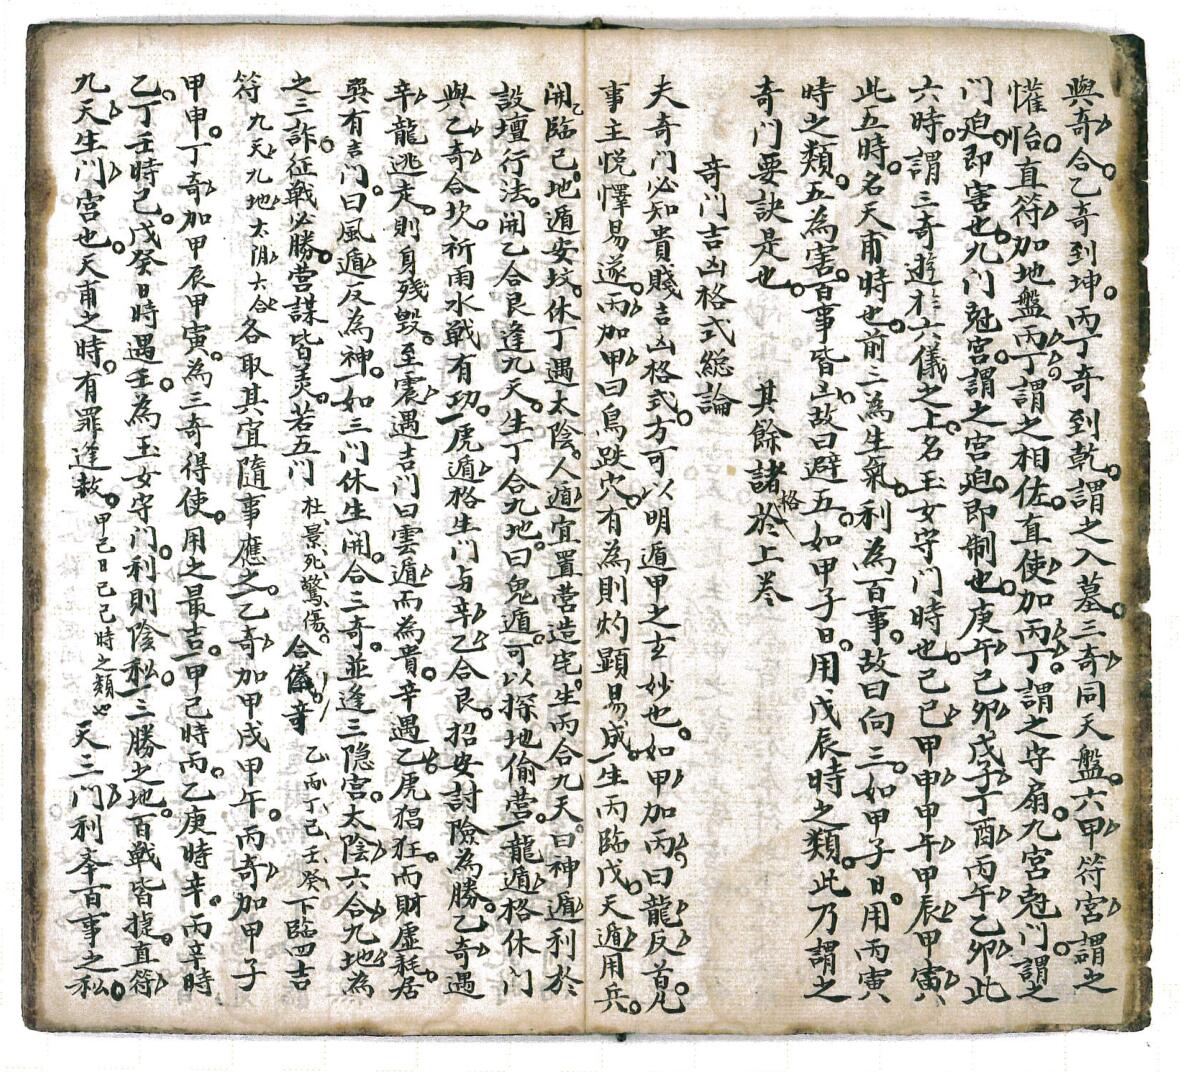 與奇合乙奇到坤丙丁奇到乾謂之入墓三奇同天盤六甲符宮謂之
懽怡直符加地盤丙丁謂之相佐直使加丙丁謂之守扇九宮尅门謂之
门迫即害也九门尅宮謂之宮迫即制也庚午己卯戊子丁酉丙午乙卯此
六時謂三奇遊於六儀之上名玉女守门時也己巳甲申甲午甲辰甲寅
此五時名天甫時也前三為生氣利為百事故曰向三如甲子日用丙寅
時之類五為害百事皆凶故曰避五如甲子日用戊辰時之類此乃謂之
奇门要訣是也 其餘諸格於上卷
奇门吉凶格式総論
夫奇门必知貴賤吉凶格式方可以明遁甲之玄妙也如甲加丙曰龍反首凢
事主悅懌易遂丙加甲曰鳥跌穴有為則灼顯易成生丙臨戊天遁用兵
開臨己地遁安坟休丁遇太陰人遁宜置营造宅生丙合九天曰神遁利於
設壇行法開乙合艮逢九天生丁合九地曰鬼遁可以探地偷营龍遁格休门
與乙奇合坎祈雨水戦有功虎遁格生门与辛乙合艮招安討險為勝乙奇遇
辛龍逃走則身残毀至震遇吉门曰雲遁而為貴辛遇乙虎猖狂而財虛耗居
巽有吉门曰風遁反為神如三门休生開合三奇並逢三隐宮太陰六合九地為
之三詐征戦必勝营謀皆美若五门 杜景死驚傷 合儀奇 乙丙丁己壬癸 下臨四吉
符 九天九地太陰六合 各取其宜隨事應之乙奇加甲戌甲午丙奇加甲子
甲申丁奇加甲辰甲寅為三奇得使用之最吉甲己時丙乙庚時辛丙辛時
乙丁壬時己戊癸日時遇壬為玉女守门利則陰私三勝之地百戦皆捷直符
九天生门宮也天甫之時有罪逢赦 甲己日己巳時之類也 天三门利夆百事之私